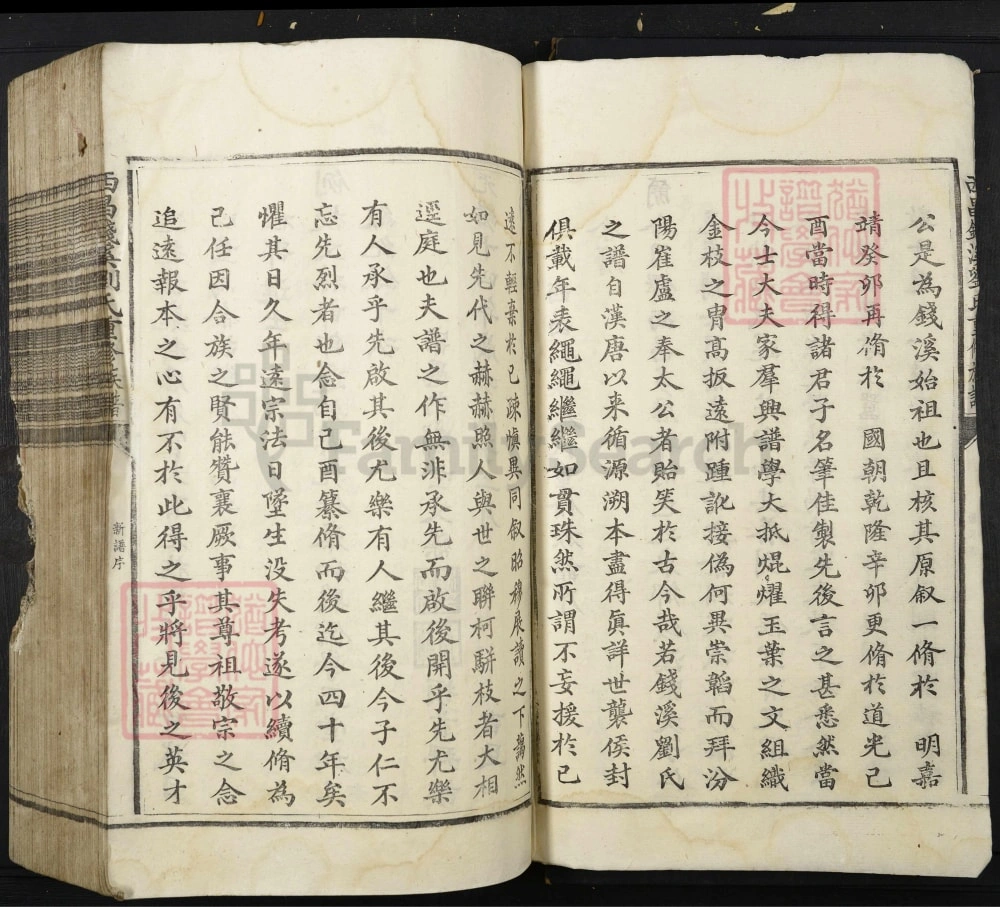 公是為錢溪始祖也且核其原叙一脩於 明嘉
靖癸卯再脩於 國朝乾隆辛卯更脩於道光己
酉當時得諸君子名筆佳製先後言之甚悉然當
今士大夫家羣興譜學大抵焜燿玉葉之文組織
金枝之冑高扳遠附踵訛接偽何異崇韜而拜汾
陽崔盧之奉太公者貽笑於古今哉若錢溪劉氏
之譜自漢唐以来循源溯本盡得眞詳世襲侯封
俱載年表繩繩繼繼如貫珠然所謂不妄援於已
遠不輕棄於已疎慎異同叙昭穆展讀之下藹然
如見先代之赫赫照人與世之聯柯駢枝者大相
逕庭也夫譜之作無非承先而啟後開乎先尤樂
有人承乎先啟其後尤樂有人繼其後今子仁不
忘先烈者也念自己酉纂脩而後迄今四十年矣
懼其日久年遠宗法日墜生没失考遂以續脩為
己任因合族之賢能贊襄厥事其尊祖敬宗之念
追遠報本之心有不於此得之乎將見後之英才
西昌錢溪劉氏重修族譜
新譜序
FamilySearch